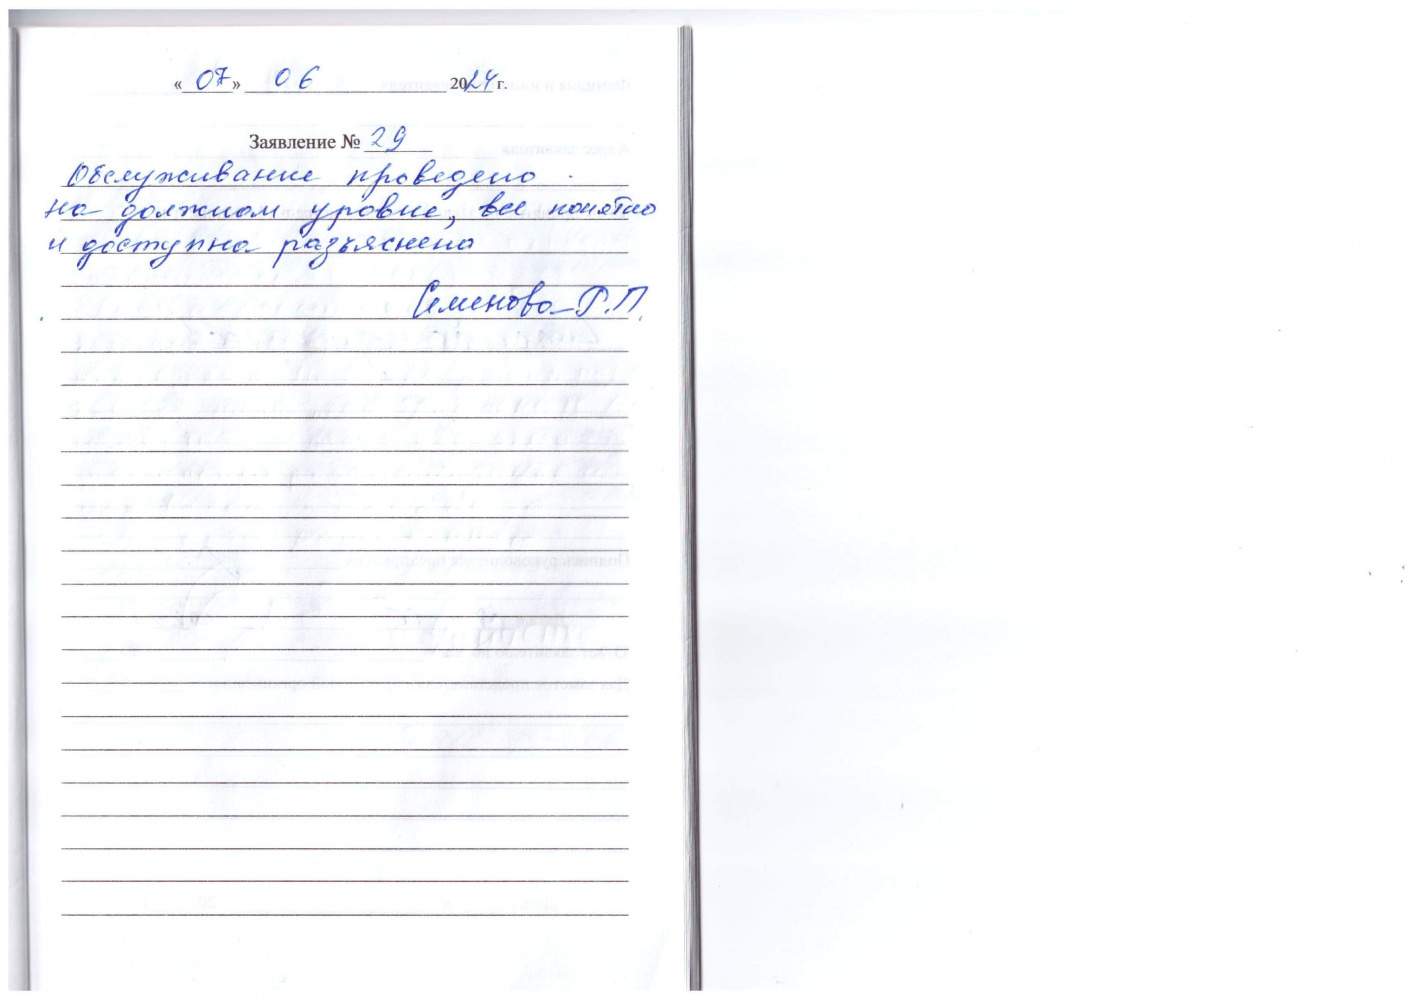 «07» 06 2024 г.
Заявление № 29
Обслуживание проведено
на должном уровне, все понятно
и доступно разъяснено
Семенова Р.П.